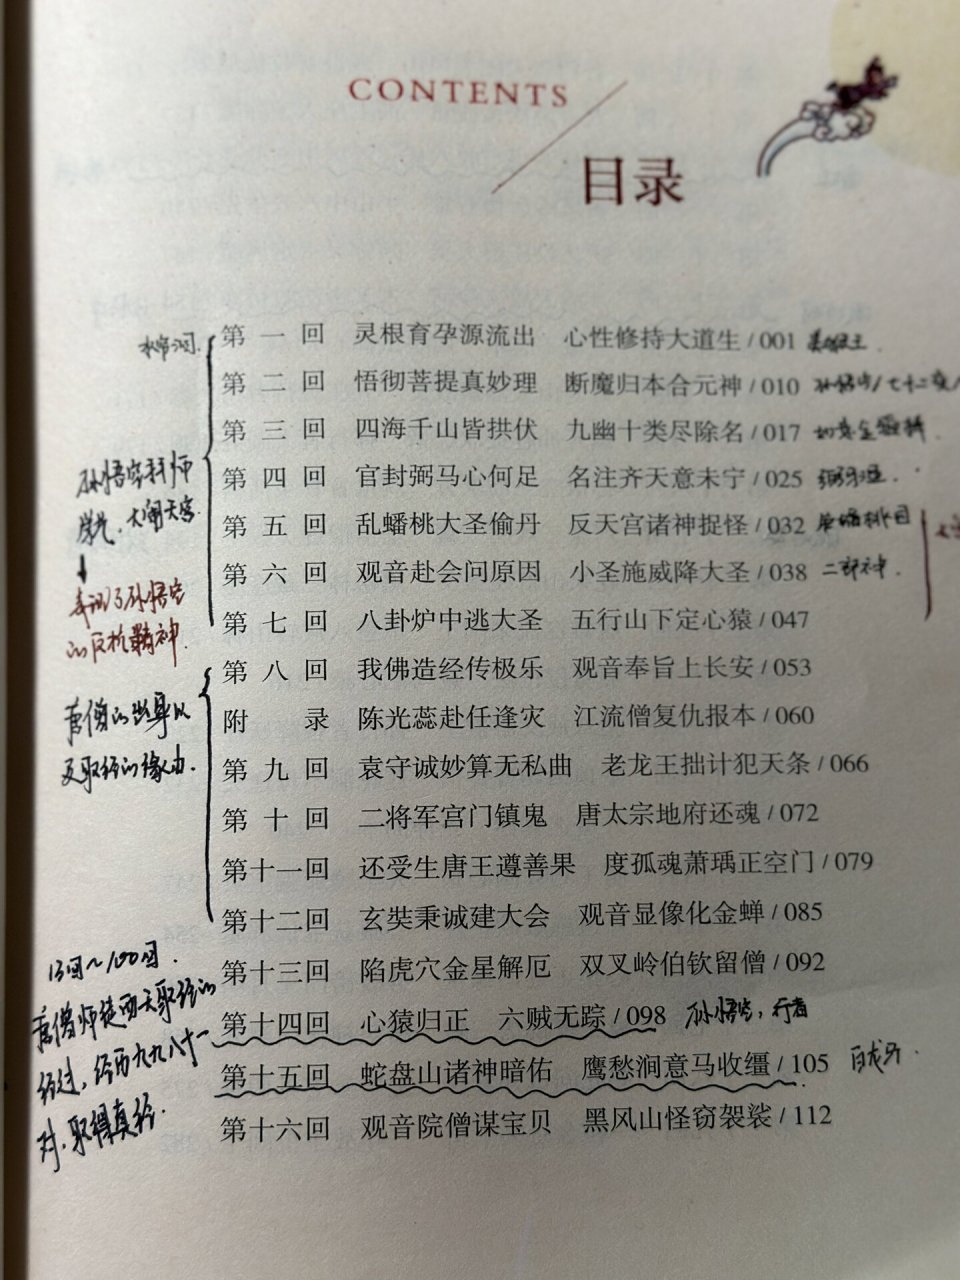 CONTENTS
目录
第一回 灵根育孕源流出 心性修持大道生 / 001 美猴王
第二回 悟彻菩提真妙理 断魔归本合元神 / 010 孙悟空/七十二变/
第三回 四海千山皆拱伏 九幽十类尽除名 / 017
第四回 官封弼马心何足 名注齐天意未宁 / 025 弼马温.
第五回 乱蟠桃大圣偷丹 反天宫诸神捉怪 / 032 蟠桃园
第六回 观音赴会问原因 小圣施威降大圣 / 038 二郎神.
第七回 八卦炉中逃大圣 五行山下定心猿 / 047
第八回 我佛造经传极乐 观音奉旨上长安 / 053
附录 陈光蕊赴任逢灾 江流僧复仇报本 / 060
第九回 袁守诚妙算无私曲 老龙王拙计犯天条 / 066
第十回 二将军宫门镇鬼 唐太宗地府还魂 / 072
第十一回 还受生唐王遵善果 度孤魂萧瑀正空门 / 079
第十二回 玄奘秉诚建大会 观音显像化金蝉 / 085
第十三回 陷虎穴金星解厄 双叉岭伯钦留僧 / 092
第十四回 心猿归正 六贼无踪 / 098 孙悟空，行者
第十五回 蛇盘山诸神暗佑 鹰愁涧意马收缰 / 105 白龙马.
第十六回 观音院僧谋宝贝 黑风山怪窃袈裟 / 112
水帘洞.
孙悟空拜师
学艺、大闹天宫
孙悟空
的反抗精神.
唐僧的出身以
及取经的缘由.
13回～100回.
唐僧师徒西天取经的
经过，经历九九八十一
难.取得真经.